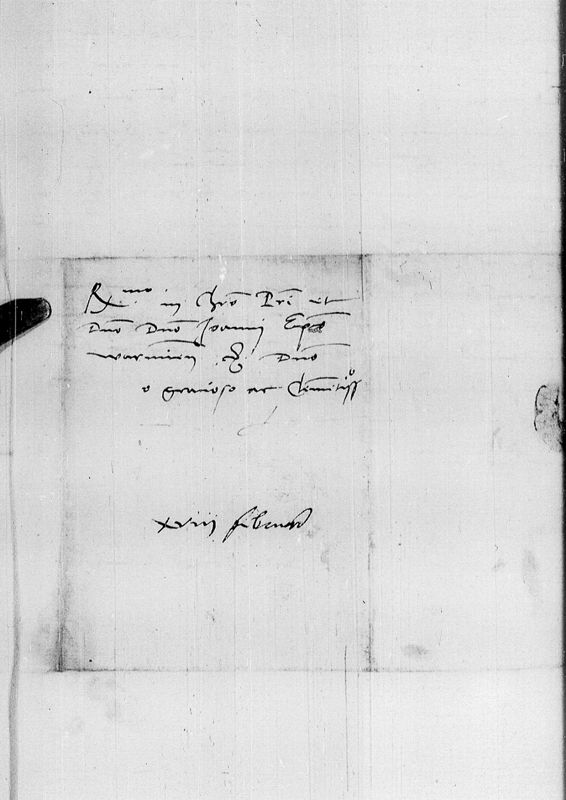 R.mo in Chro Pri et
Dno Dno Joanni Epo
warmien etc. Dno
o gratioso ac Clementiss.o
xviii februar